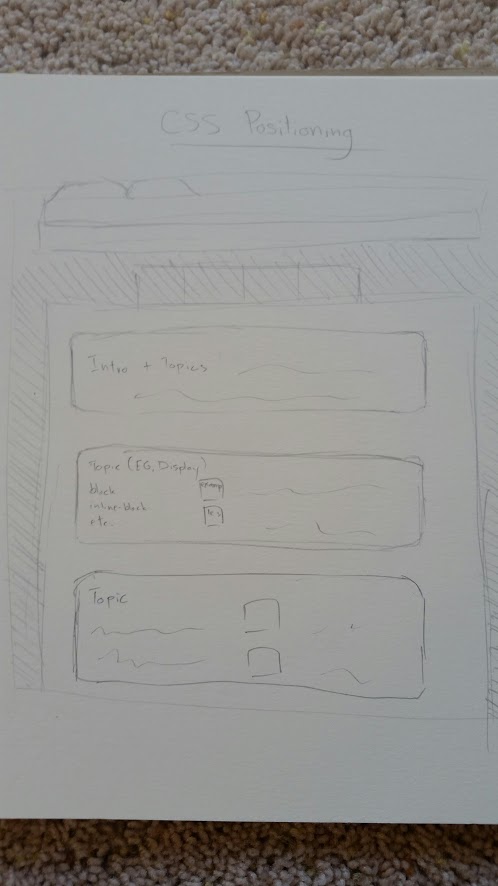 CSS Positioning
Intro + Topics
Topic (EG, Display)
block
inline-block
etc.
Topic